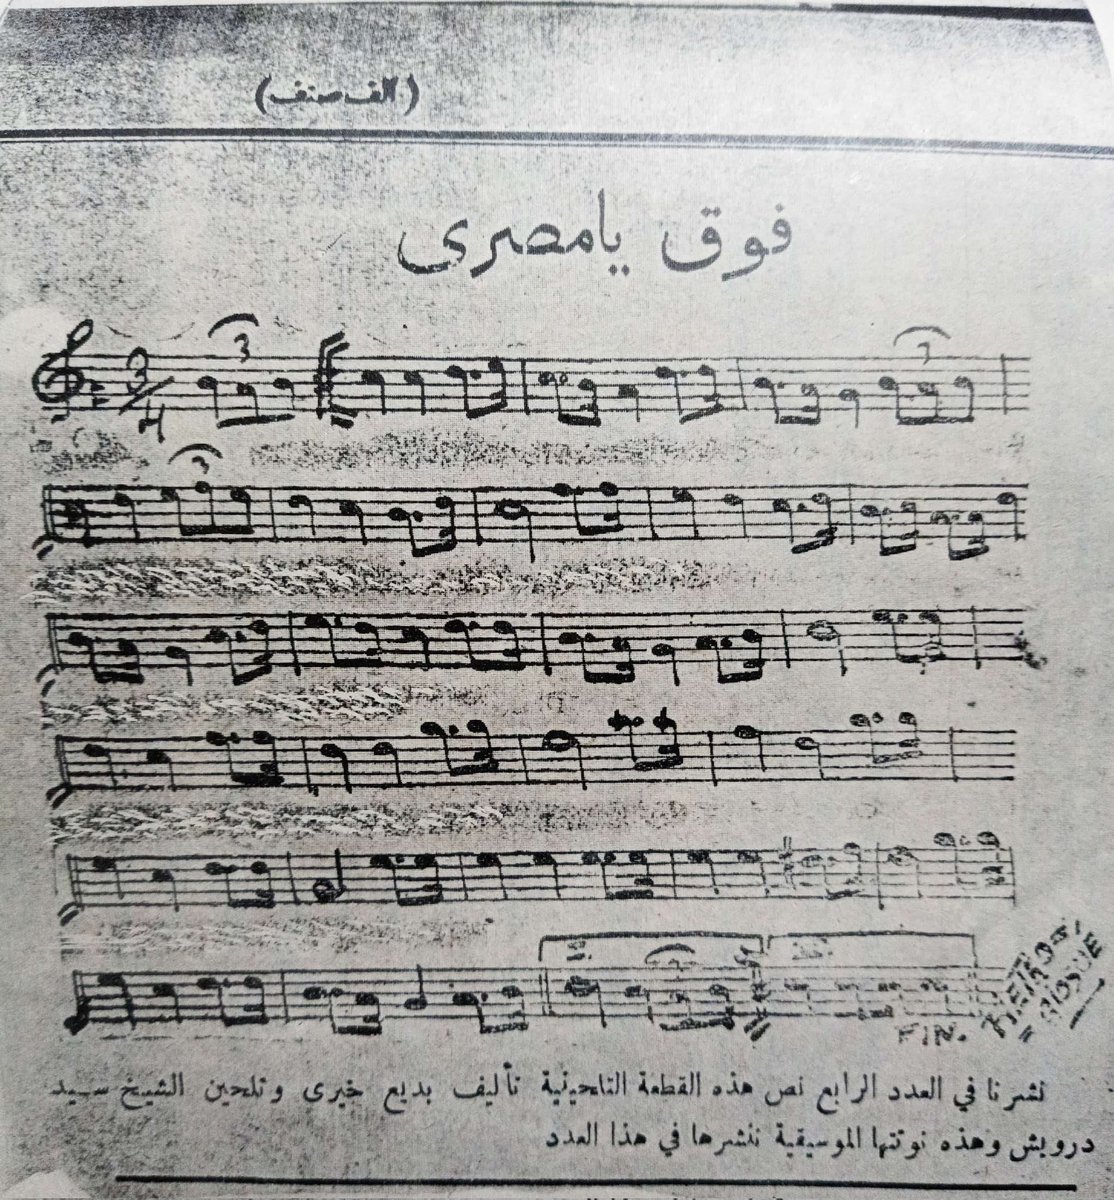 (الف صنف)
فوق يامصرى
3
3/4
3
3
3
FIN.
PIETRO
GIOSUE
نشرنا في العدد الرابع نص هذه القطعة التلحينية تأليف بديع خيرى وتلحين الشيخ سيد
درويش وهذه نوتتها الموسيقية ننشرها في هذا العدد